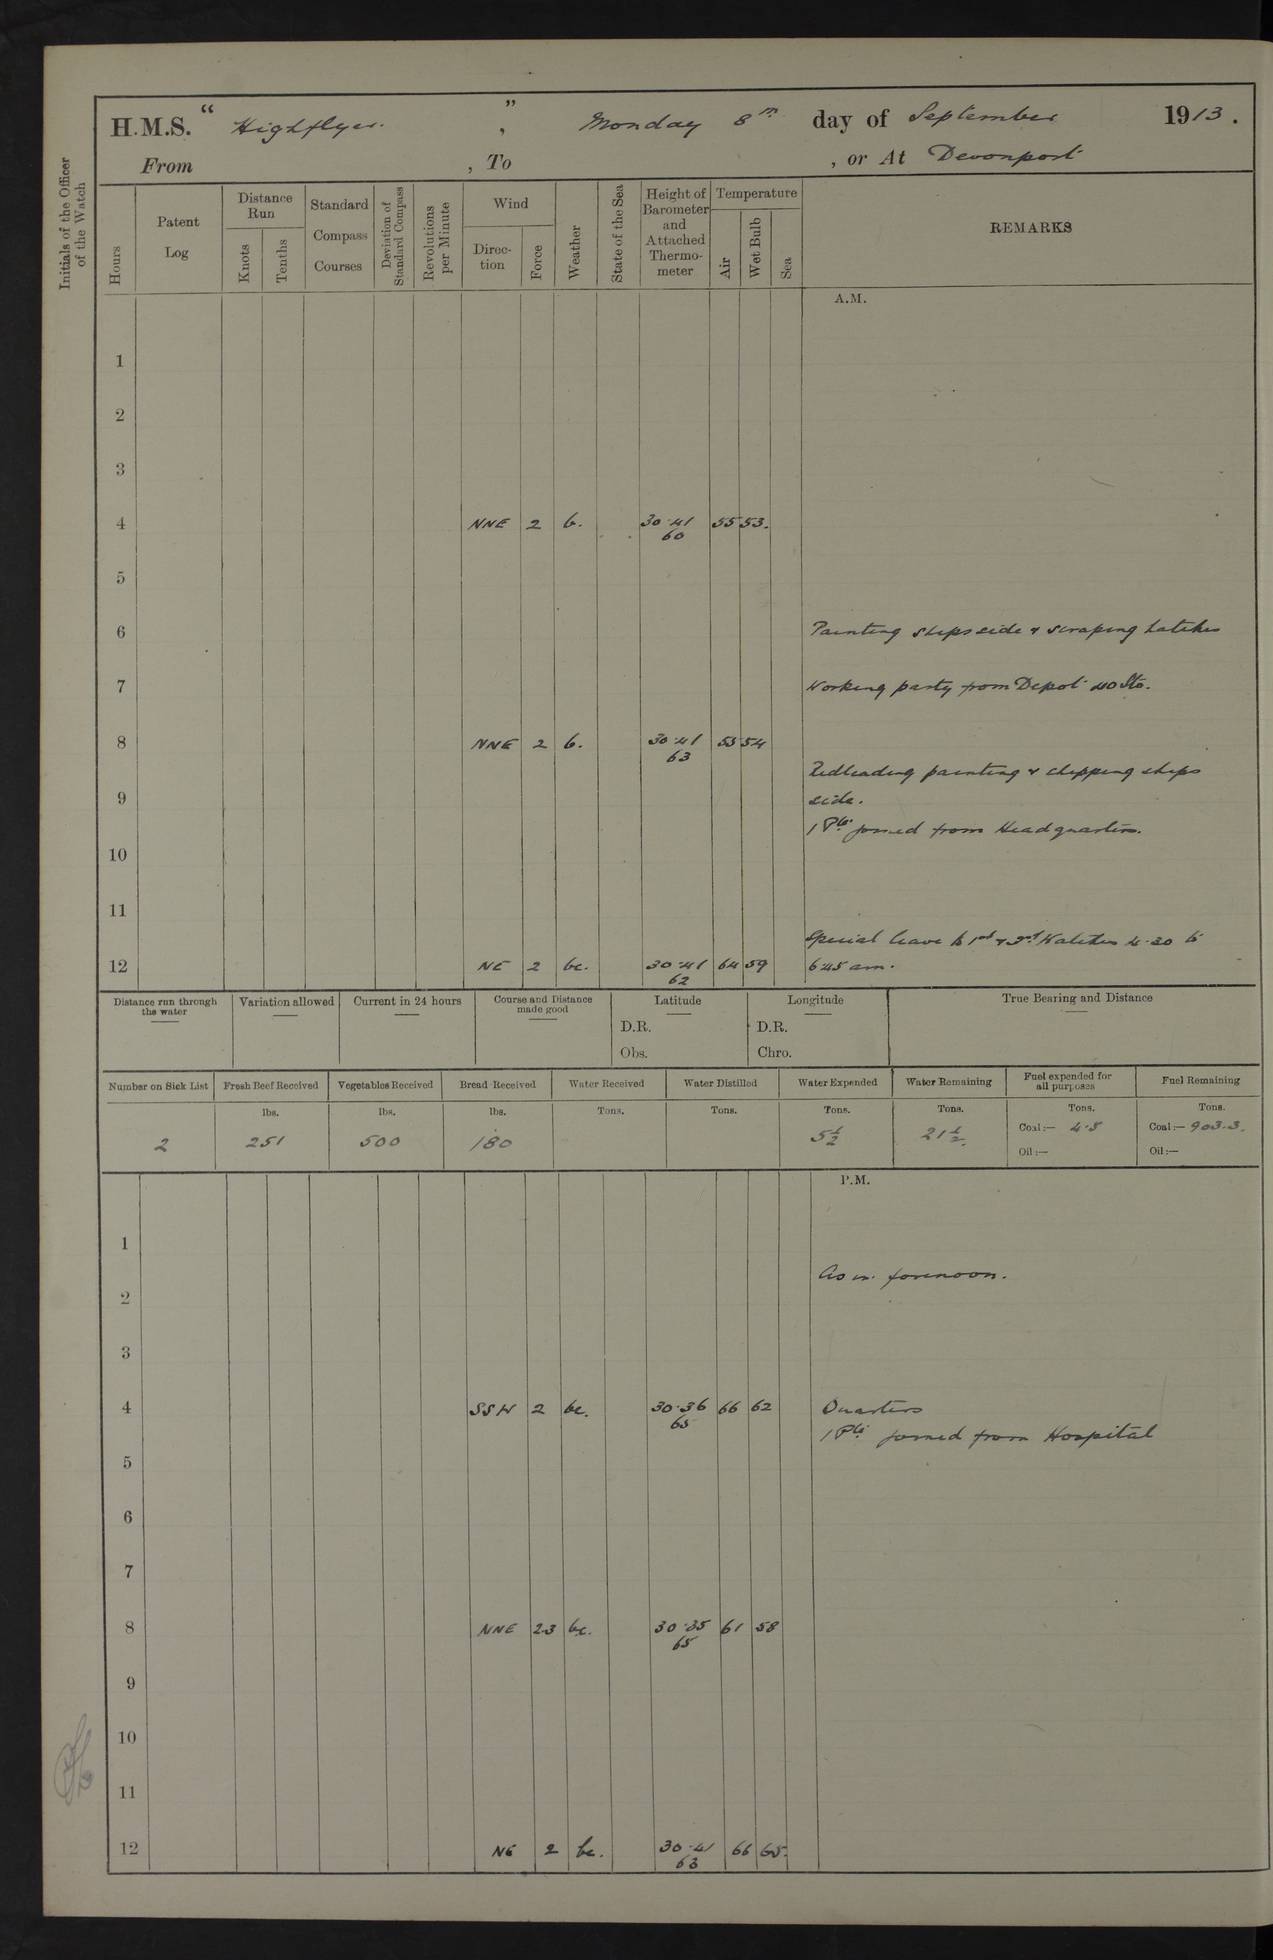 H.M.S. " Highflyer. " , Monday 8th day of September 1913.
From , To , or At Devonport
Initials of the Officer of the Watch
Hours
Patent Log
Distance Run
Knots
Tenths
Standard Compass Courses
Deviation of Standard Compass
Revolutions per Minute
Wind
Direction
Force
Weather
State of the Sea
Height of Barometer and Attached Thermometer
Temperature
Air
Wet Bulb
Sea
REMARKS
A.M.
1
2
3
4 NNE 2 b. 30.41 55 53.
60
5
6 Painting ships side & scraping hatches
7 Working party from Depot 40 Sto.
8 NNE 2 b. 30.41 55 54
63
Redleading painting & chipping ships
9 side.
1 Pte. joined from Headquarters.
10
11
Special leave to 1st & 2nd Watches 4.30 to
12 NE 2 bc. 30.41 64 59 6.45 am.
62
Distance run through the water
Variation allowed
Current in 24 hours
Course and Distance made good
Latitude
D.R.
Obs.
Longitude
D.R.
Chro.
True Bearing and Distance
Number on Sick List Fresh Beef Received Vegetables Received Bread Received Water Received Water Distilled Water Expended Water Remaining Fuel expended for all purposes Fuel Remaining
lbs. lbs. lbs. Tons. Tons. Tons. Tons. Tons. Tons.
2 251 500 180 5½ 21½. Coal:— 4.8 Coal:— 903.3.
Oil:— Oil:—
P.M.
1
As in forenoon.
2
3
4 SSW 2 bc. 30.36 66 62 Quarters
65
1 Pte. joined from Hospital
5
6
7
8 NNE 2.3 bc. 30.35 61 58
65
9
10
11
12 NE 2 bc. 30.41 66 65.
63